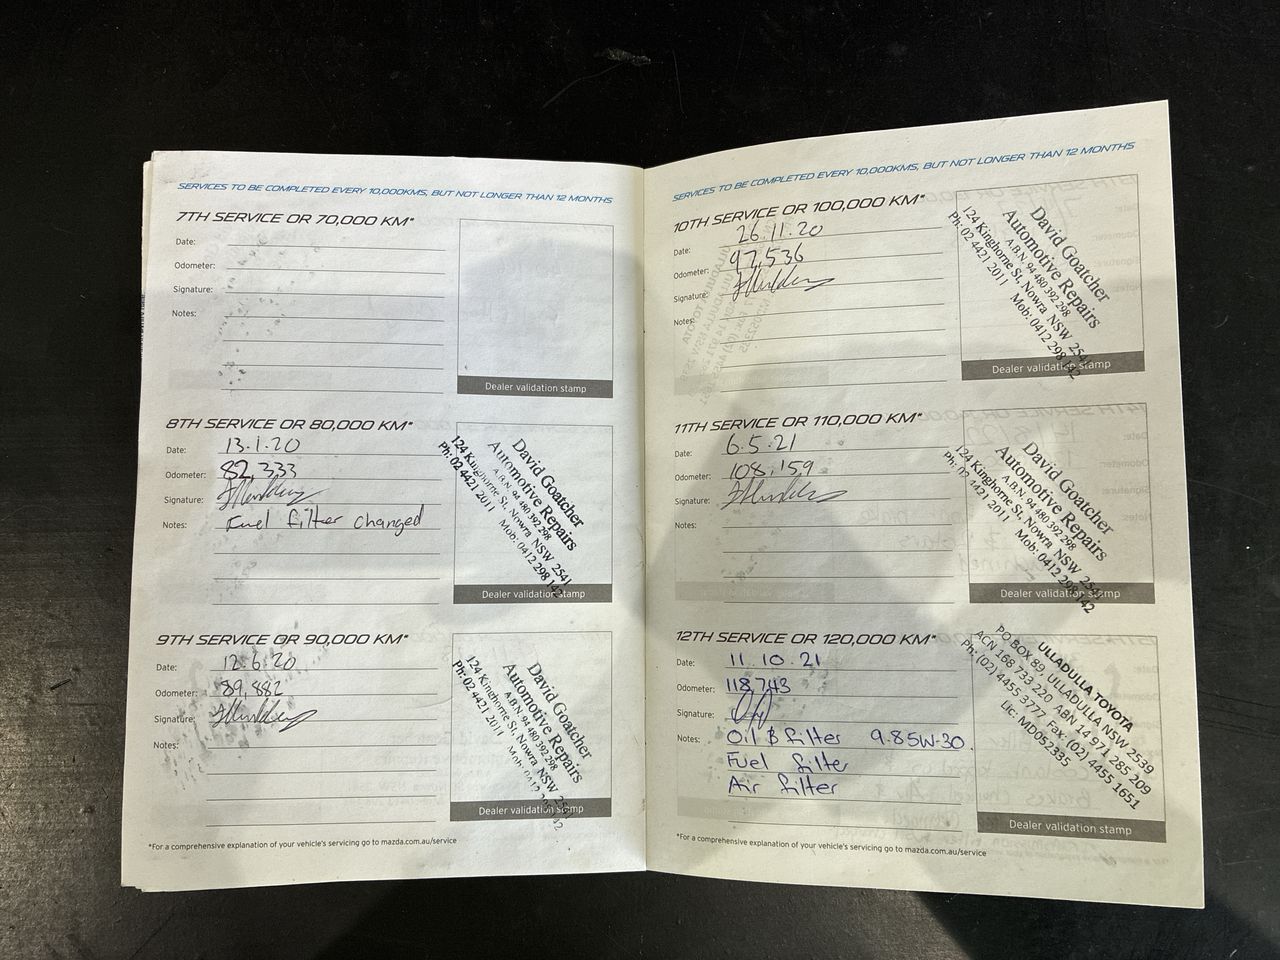 SERVICES TO BE COMPLETED EVERY 10,000KMS, BUT NOT LONGER THAN 12 MONTHS
7TH SERVICE OR 70,000 KM*
Date:
Odometer:
Signature:
Notes:
Dealer validation stamp
8TH SERVICE OR 80,000 KM*
Date: 13.1.20
Odometer: 82,333
Signature:
Notes: Fuel filter changed
David Goatcher
Automotive Repairs
A.B.N. 94 480 392 298
124 Kinghorne St, Nowra NSW 2541
Ph: 02 4421 2011 Mob: 0412 298 142
Dealer validation stamp
9TH SERVICE OR 90,000 KM*
Date: 12.6.20
Odometer: 89,882
Signature:
Notes:
David Goatcher
Automotive Repairs
A.B.N. 94 480 392 298
124 Kinghorne St, Nowra NSW 2541
Ph: 02 4421 2011 Mob: 0412
Dealer validation stamp
*For a comprehensive explanation of your vehicle's servicing go to mazda.com.au/service
SERVICES TO BE COMPLETED EVERY 10,000KMS, BUT NOT LONGER THAN 12 MONTHS
10TH SERVICE OR 100,000 KM*
Date: 26.11.20
Odometer: 97,536
Signature:
Notes:
David Goatcher
Automotive Repairs
A.B.N. 94 480 392 298
124 Kinghorne St, Nowra NSW 2541
Ph: 02 4421 2011 Mob: 0412 298 142
Dealer validation stamp
11TH SERVICE OR 110,000 KM*
Date: 6.5.21
Odometer: 108,159
Signature:
Notes:
David Goatcher
Automotive Repairs
A.B.N. 94 480 392 298
124 Kinghorne St, Nowra NSW 2541
Ph: 02 4421 2011 Mob: 0412 298 142
Dealer validation stamp
12TH SERVICE OR 120,000 KM*
Date: 11.10.21
Odometer: 118,743
Signature:
Notes: Oil & filter 9.85W-30
Fuel filte
Air filter
ULLADULLA TOYOTA
PO BOX 89, ULLADULLA NSW 2539
ACN 168 733 220 ABN 14 971 285 209
Ph: (02) 4455 3777 Fax: (02) 4455 1651
Lic: MD052335
Dealer validation stamp
*For a comprehensive explanation of your vehicle's servicing go to mazda.com.au/service